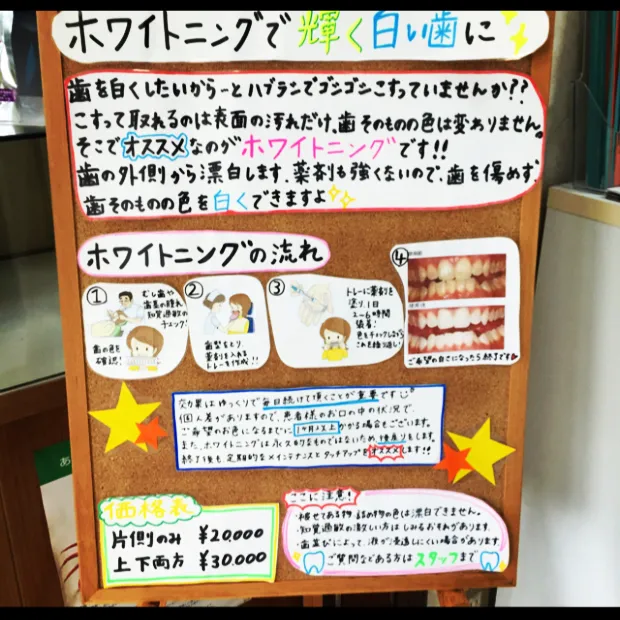 ホワイトニングで輝く白い歯に
歯を白くしたいからーとハブラシでゴシゴシこすっていませんか??
こすって取れるのは表面の汚れだけ、歯そのものの色は変わりません。
そこでオススメなのがホワイトニングです!!
歯の外側から漂白します。薬剤も強くないので、歯を傷めず、
歯そのものの色を白くできますよ
ホワイトニングの流れ
①
むし歯や
歯茎の腫れ
知覚過敏の
チェック!
歯の色を
確認!
②
歯型をとり
薬剤を入れる
トレーを作成!!
③
トレーに薬剤を
塗り、1日
2~6時間
装着!
色をチェックしながら
これを繰り返し!
④
ご希望の白さになったら終了です
効果はゆっくりで毎日続けて頂くことが重要です
個人差がありますので、患者様のお口の中の状況で、
ご希望のお色になるまでに1ヶ月以上かかる場合もございます。
また、ホワイトニングは永久的なものではないため、後戻りもします。
終了後も定期的なメインテナンスとタッチアップをオススメします!!
価格表
片側のみ ¥20,000
上下両方 ¥30,000
ここに注意!
・被せてある物、詰め物の色は漂白できません。
・知覚過敏の激しい方はしみるおそれがあります
・歯並びによって、液が浸透しにくい場合があります
ご質問などある方はスタッフまで
あ